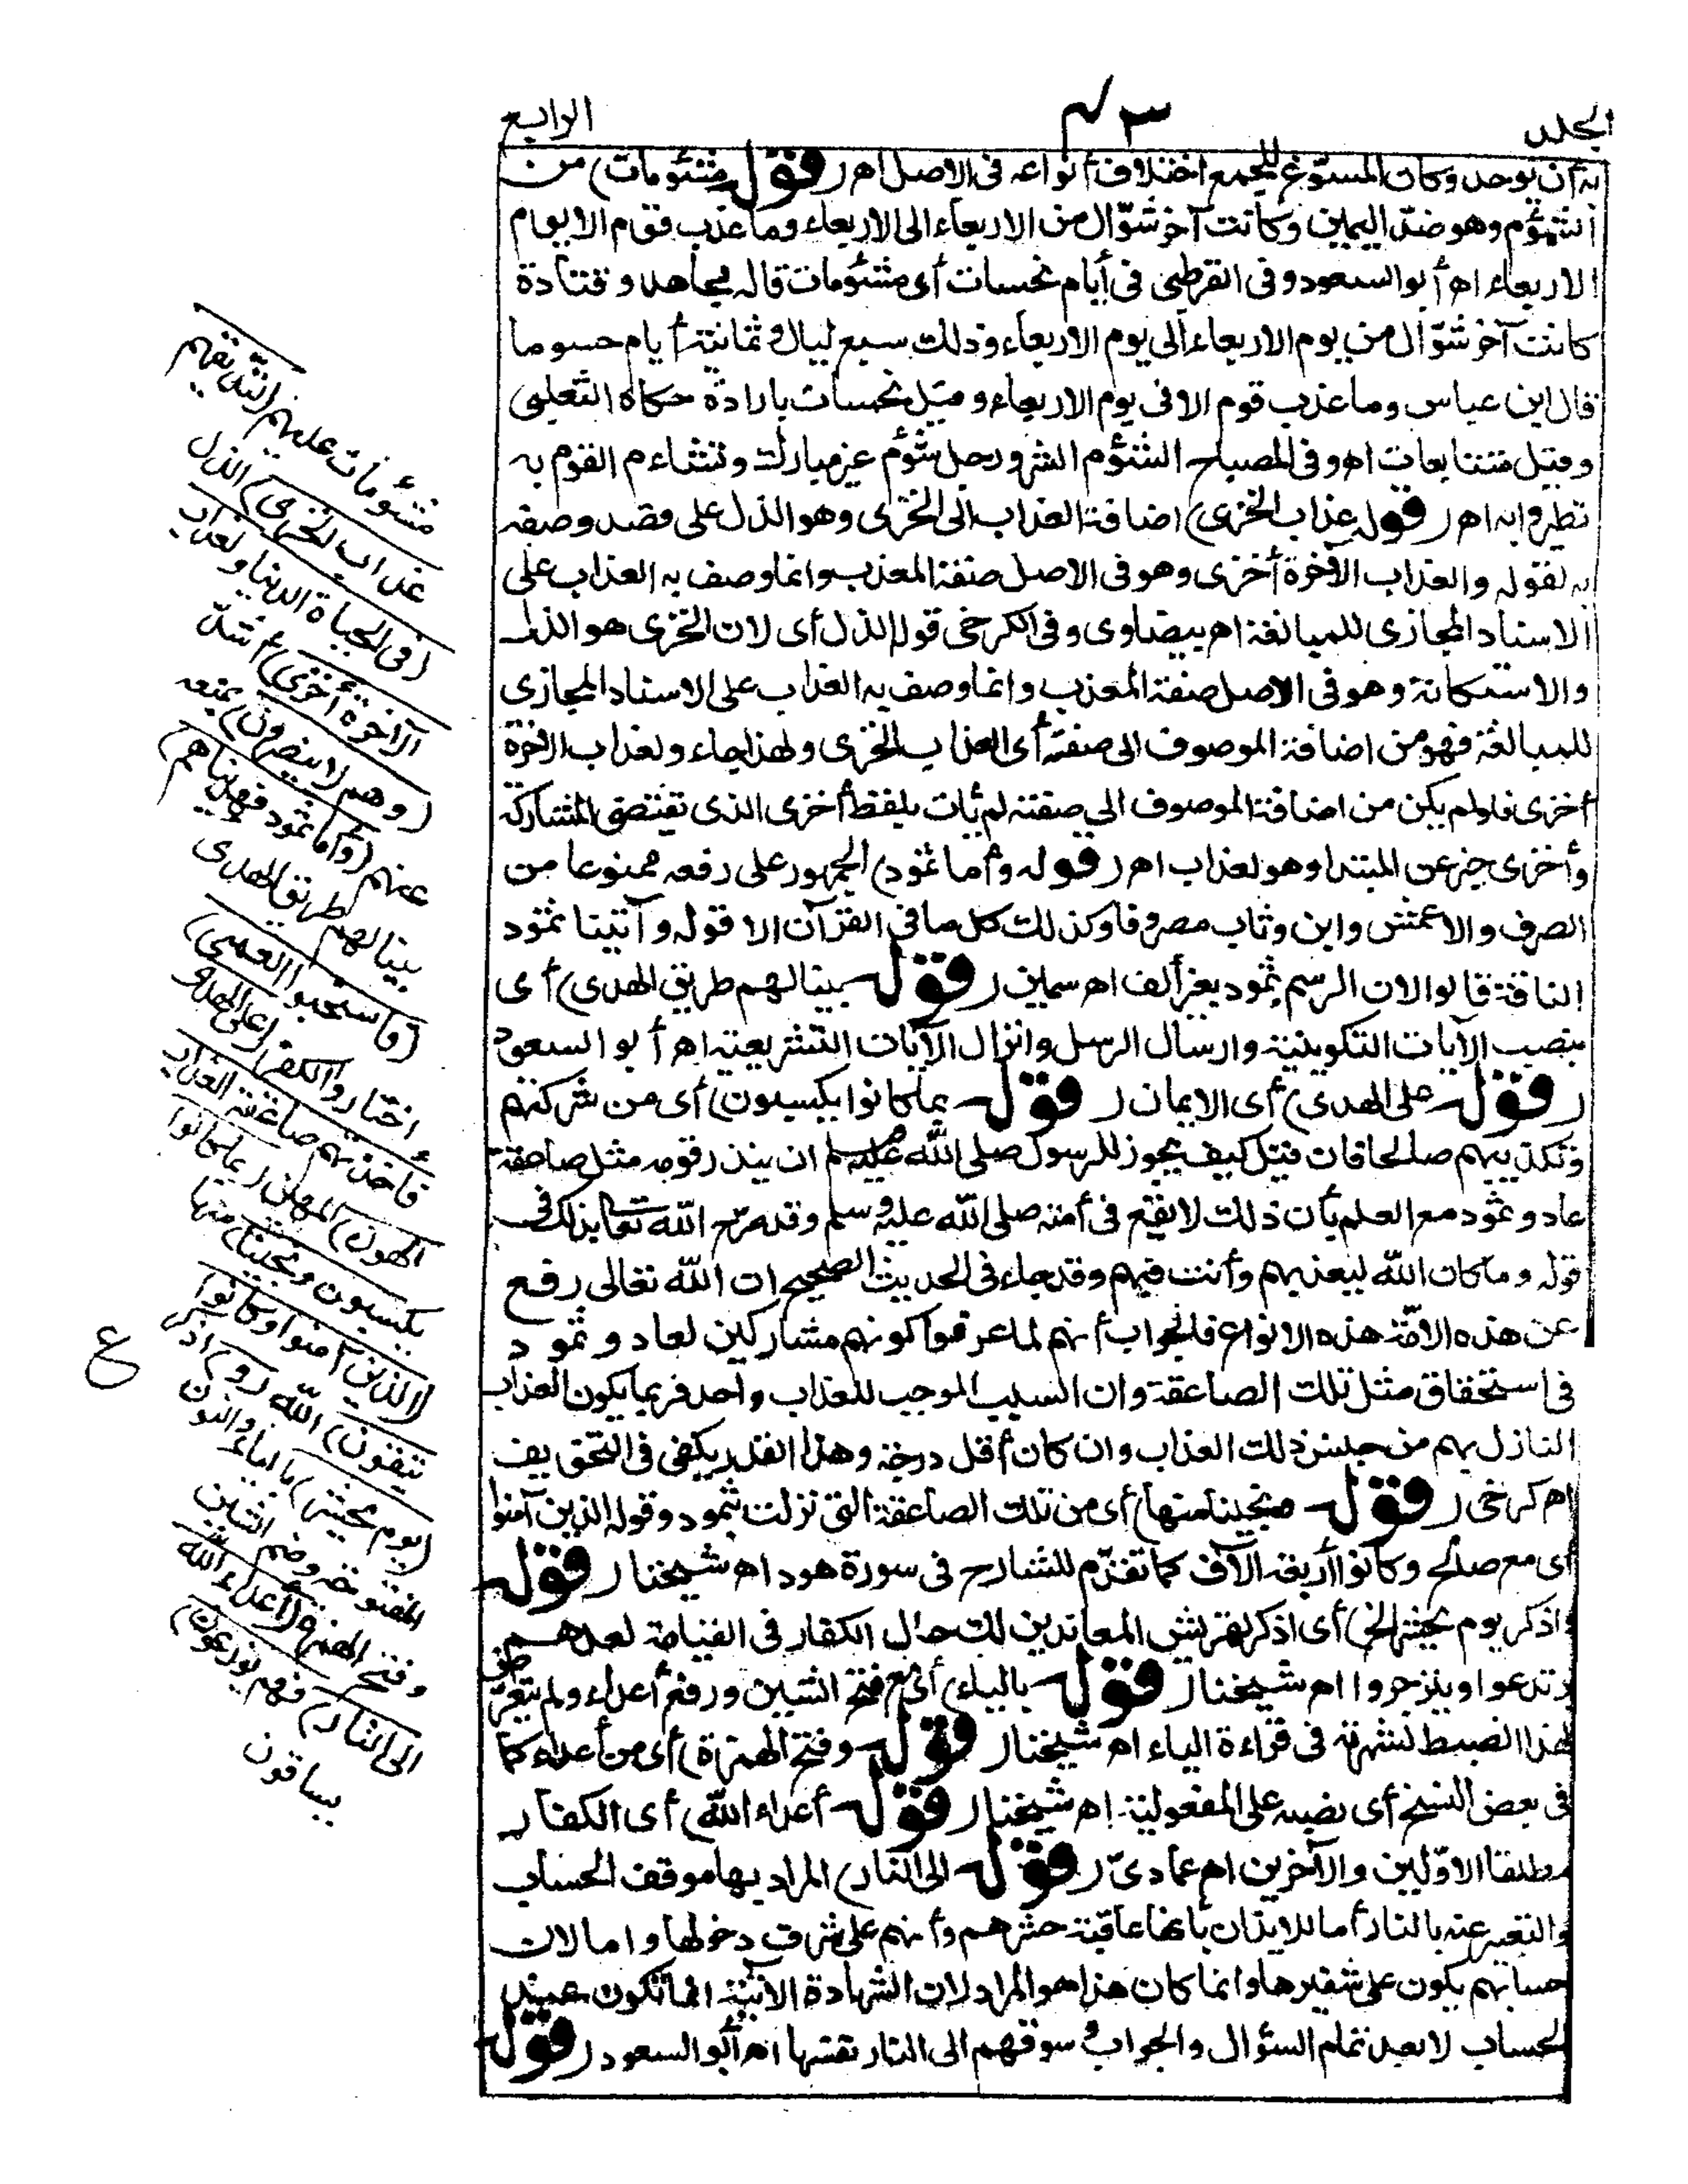 الجلد
٤٣
الرابع
به أن يوحد وكان المسوّغ للجمع اختلاف أنواعه فى الاصل اهـ (قوله مشئومات) من
الشؤم وهو ضدّ اليمين وكانت آخر شوّال من الاربعاء الى الاربعاء وما عذب قوم الا يوم
الاربعاء اهـ أبو السعود وفى القرطبى فى أيام نحسات أى مشئومات قاله مجاهد وقتادة
كانت آخر شوّال من يوم الاربعاء الى يوم الاربعاء وذلك سبع ليال وثمانية أيام حسوما
قال ابن عباس وما عذب قوم الا فى يوم الاربعاء وقيل نحسات باردة حكاه الثعلبى
وقيل متتابعات اهـ وفى المصباح الشؤم الشر ورجل شؤم غير مبارك وتشاءم القوم به
تطيروا به اهـ (قوله عذاب الخزى) اضافة العذاب الى الخزى وهو الذل على قصد وصفه
به لقوله والعذاب الآخرة أخزى وهو فى الاصل صفة المعذب وانما وصف به العذاب على
الاسناد المجازى للمبالغة اهـ بيضاوى وفى الكرخى قوله الذل أى لان الخزى هو الذل
والاستكانة وهو فى الاصل صفة المعذب وانما وصف به العذاب على الاسناد المجازى
للمبالغة فهو من اضافة الموصوف الى صفته أى العذاب الخزى ولهذا جاء ولعذاب الآخرة
أخزى فلو لم يكن من اضافة الموصوف الى صفته لم يأت بلفظ أخزى الذى تقتضى المشاركة
وأخزى خبر عن المبتدا وهو لعذاب اهـ (قوله وأما ثمود) الجمهور على رفعه ممنوعا من
الصرف والاعمش وابن وثاب مصروفا وكذلك كل ما فى القرآن الا قوله وآتينا ثمود
الناقة قالوا لان الرسم ثمود بغير ألف اهـ سمين (قوله بينا لهم طريق الهدى) أى
بنصب الآيات التكوينية وارسال الرسل وانزال الآيات التشريعية اهـ أبو السعود
(قوله على الهدى) أى الايمان (قوله بما كانوا يكسبون) أى من شركهم
وتكذيبهم صالحا فان قيل كيف يجوز للرسول صلى الله عليه وسلم ان ينذر قومه مثل صاعقة
عاد وثمود مع العلم بأن ذلك لا يقع فى أمته صلى الله عليه وسلم وقد صرّح الله تعالى بذلك فى
قوله وما كان الله ليعذبهم وأنت فيهم وقد جاء فى الحديث الصحيح ان الله تعالى رفع
عن هذه الامّة هذه الانواع فالجواب أنهم لما عرفوا كونهم مشاركين لعاد وثمود
فى استحقاق مثل تلك الصاعقة وان السبب الموجب للعذاب واحد فربما يكون العذاب
النازل بهم من جنس ذلك العذاب وان كان أقل درجة وهذا القدر يكفى فى التخويف
اهـ كرخى (قوله ونجينا منها) أى من تلك الصاعقة التى نزلت بثمود وقوله الذين آمنوا
أى مع صالح وكانوا أربعة آلاف كما تقدّم للشارح فى سورة هود اهـ شيخنا (قوله
واذكر يوم نحشر الخ) أى اذكر لقريش المعاندين لك حال الكفار فى القيامة لعلهم
يرتدعوا وينزجروا اهـ شيخنا (قوله بالياء) أى مع فتح الشين ورفع أعداء ولم يتعرّض
لهذا الضبط لشهرته فى قراءة الياء اهـ شيخنا (قوله وفتح الهمزة) أى من أعداء كما
فى بعض النسخ أى نصبه على المفعولية اهـ شيخنا (قوله أعداء الله) أى الكفار
مطلقا الاوّلين والآخرين اهـ عمادىّ (قوله الى النار) المراد بها موقف الحساب
والتعبير عنه بالنار أما للايذان بأنها عاقبة حشرهم وأنهم على شرف دخولها واما لان
حسابهم يكون على شفيرها وانما كان هذا هو المراد لان الشهادة الآتية انما تكون عند
الحساب لا بعد تمام السؤال والجواب وسوقهم الى النار نفسها اهـ أبو السعود (قوله
مشئومات عليهم (لنذيقهم
عذاب الخزى) الذل
(فى الحياة الدنيا ولعذاب
الآخرة أخزى) أشدّ
(وهم لا ينصرون) بمنعه
عنهم (وأما ثمود فهديناهم)
بينا لهم طريق الهدى
(فاستحبوا العمى)
اختاروا الكفر (على الهدى
فأخذتهم صاعقة العذاب
الهون) المهين (بما كانوا
يكسبون ونجينا) منها
(الذين آمنوا وكانوا
يتقون) الله (و) اذكر
(يوم يحشر) بالياء والنون
المفتوحة وضم الشين
وفتح الهمزة (أعداء الله
الى النار) فهم يوزعون)
يساقون
ع